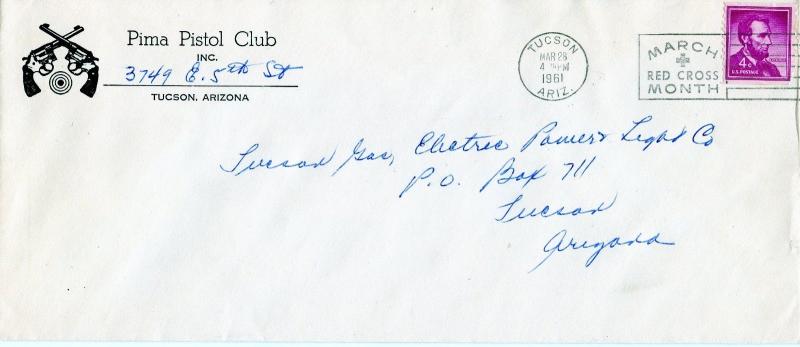 Pima Pistol Club
INC.
3749 E. 5th St
TUCSON, ARIZONA
TUCSON
MAR 28
4 PM
1961
ARIZ.
MARCH
RED CROSS
MONTH
4¢
U.S. POSTAGE
Tucson Gas, Electric Power & Light Co
P.O. Box 711
Tucson
Arizona